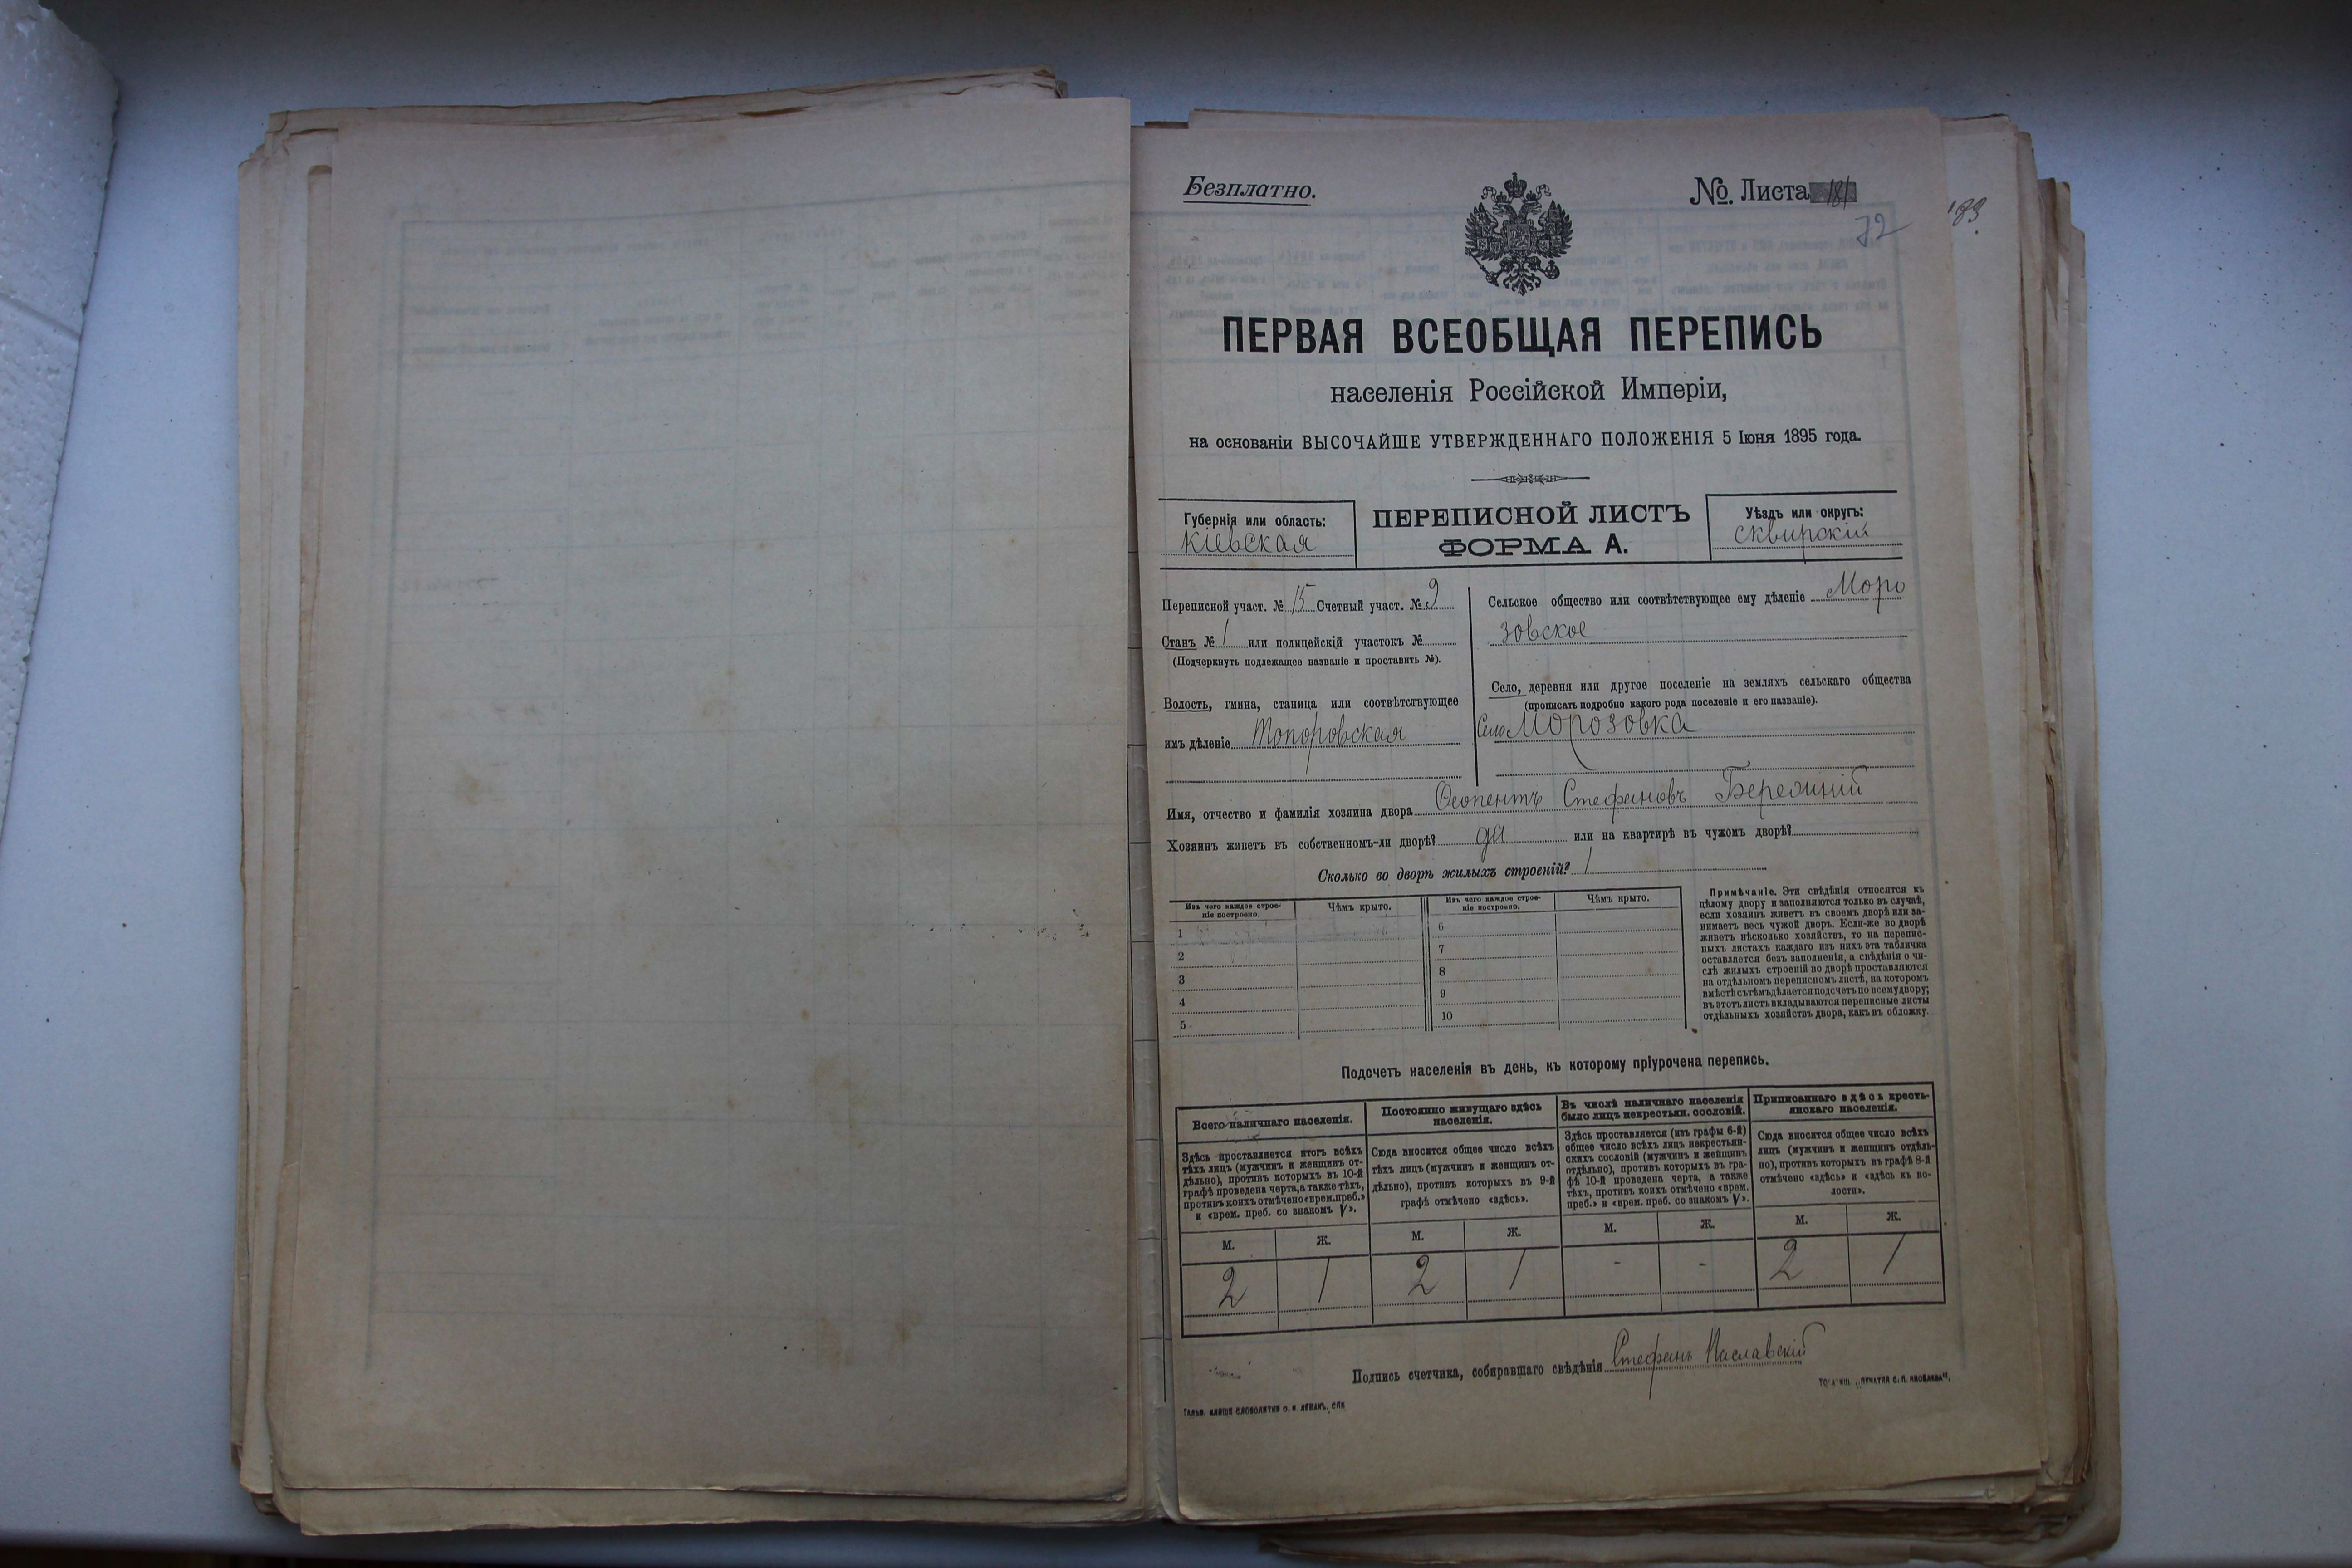 Безплатно.
№. Листа 181
72
183
ПЕРВАЯ ВСЕОБЩАЯ ПЕРЕПИСЬ
населенія Россійской Имперіи,
на основаніи ВЫСОЧАЙШЕ УТВЕРЖДЕННАГО ПОЛОЖЕНІЯ 5 Іюня 1895 года.
Губернія или область:
Кіевская
ПЕРЕПИСНОЙ ЛИСТЪ
ФОРМА А.
Уѣздъ или округъ:
сквирскій
Переписной участ. № 15 Счетный участ. № 9
Станъ № 1 или полицейскій участокъ №
(Подчеркнуть подлежащее названіе и проставить №).
Волость, гмина, станица или соотвѣтствующее
имъ дѣленіе Топоровская
Сельское общество или соотвѣтствующее ему дѣленіе Моро
зовское
Село, деревня или другое поселеніе на земляхъ сельскаго общества
(прописать подробно какого рода поселеніе и его названіе).
Село Морозовка
Имя, отчество и фамилія хозяина двора Феопентъ Стефановъ
Хозяинъ живетъ въ собственномъ-ли дворѣ? да или на квартирѣ въ чужомъ дворѣ?
Сколько во дворѣ жилыхъ строеній? 1
Изъ чего каждое строе-
ніе построено.
Чѣмъ крыто.
Изъ чего каждое строе-
ніе построено.
Чѣмъ крыто.
1
2
3
4
5
6
7
8
9
10
Примѣчаніе. Эти свѣдѣнія относятся къ
цѣлому двору и заполняются только въ случаѣ,
если хозяинъ живетъ въ своемъ дворѣ или за-
нимаетъ весь чужой дворъ. Если-же во дворѣ
живетъ нѣсколько хозяйствъ, то на перепис-
ныхъ листахъ каждаго изъ нихъ эта табличка
оставляется безъ заполненія, а свѣдѣнія о чи-
слѣ жилыхъ строеній во дворѣ проставляются
на отдѣльномъ переписномъ листѣ, на которомъ
вмѣстѣ съ тѣмъ дѣлается подсчетъ по всему двору;
въ этотъ листъ вкладываются переписные листы
отдѣльныхъ хозяйствъ двора, какъ въ обложку.
Подсчетъ населенія въ день, къ которому пріурочена перепись.
Всего наличнаго населенія.
Здѣсь проставляется итогъ всѣхъ
тѣхъ лицъ (мужчинъ и женщинъ от-
дѣльно), противъ которыхъ въ 10-й
графѣ проведена черта, а также тѣхъ,
противъ коихъ отмѣчено «врем. преб.»
и «врем. преб. со знакомъ V».
Постоянно живущаго здѣсь
населенія.
Сюда вносится общее число всѣхъ
тѣхъ лицъ (мужчинъ и женщинъ от-
дѣльно), противъ которыхъ въ 9-й
графѣ отмѣчено «здѣсь».
Въ числѣ наличнаго населенія
было лицъ некрестьян. сословій.
Здѣсь проставляется (изъ графы 6-й)
общее число всѣхъ лицъ некрестьян-
скихъ сословій (мужчинъ и женщинъ
отдѣльно), противъ которыхъ въ гра-
фѣ 10-й проведена черта, а также
тѣхъ, противъ коихъ отмѣчено «врем.
преб.» и «врем. преб. со знакомъ V».
Приписаннаго здѣсь кресть-
янскаго населенія.
Сюда вносится общее число всѣхъ
лицъ (мужчинъ и женщинъ отдѣль-
но), противъ которыхъ въ графѣ 8-й
отмѣчено «здѣсь» и «здѣсь къ во-
лости».
М. Ж. М. Ж. М. Ж. М. Ж.
2 1 2 1 - - 2 1
Подпись счетчика, собиравшаго свѣдѣнія Стефанъ Маславскій